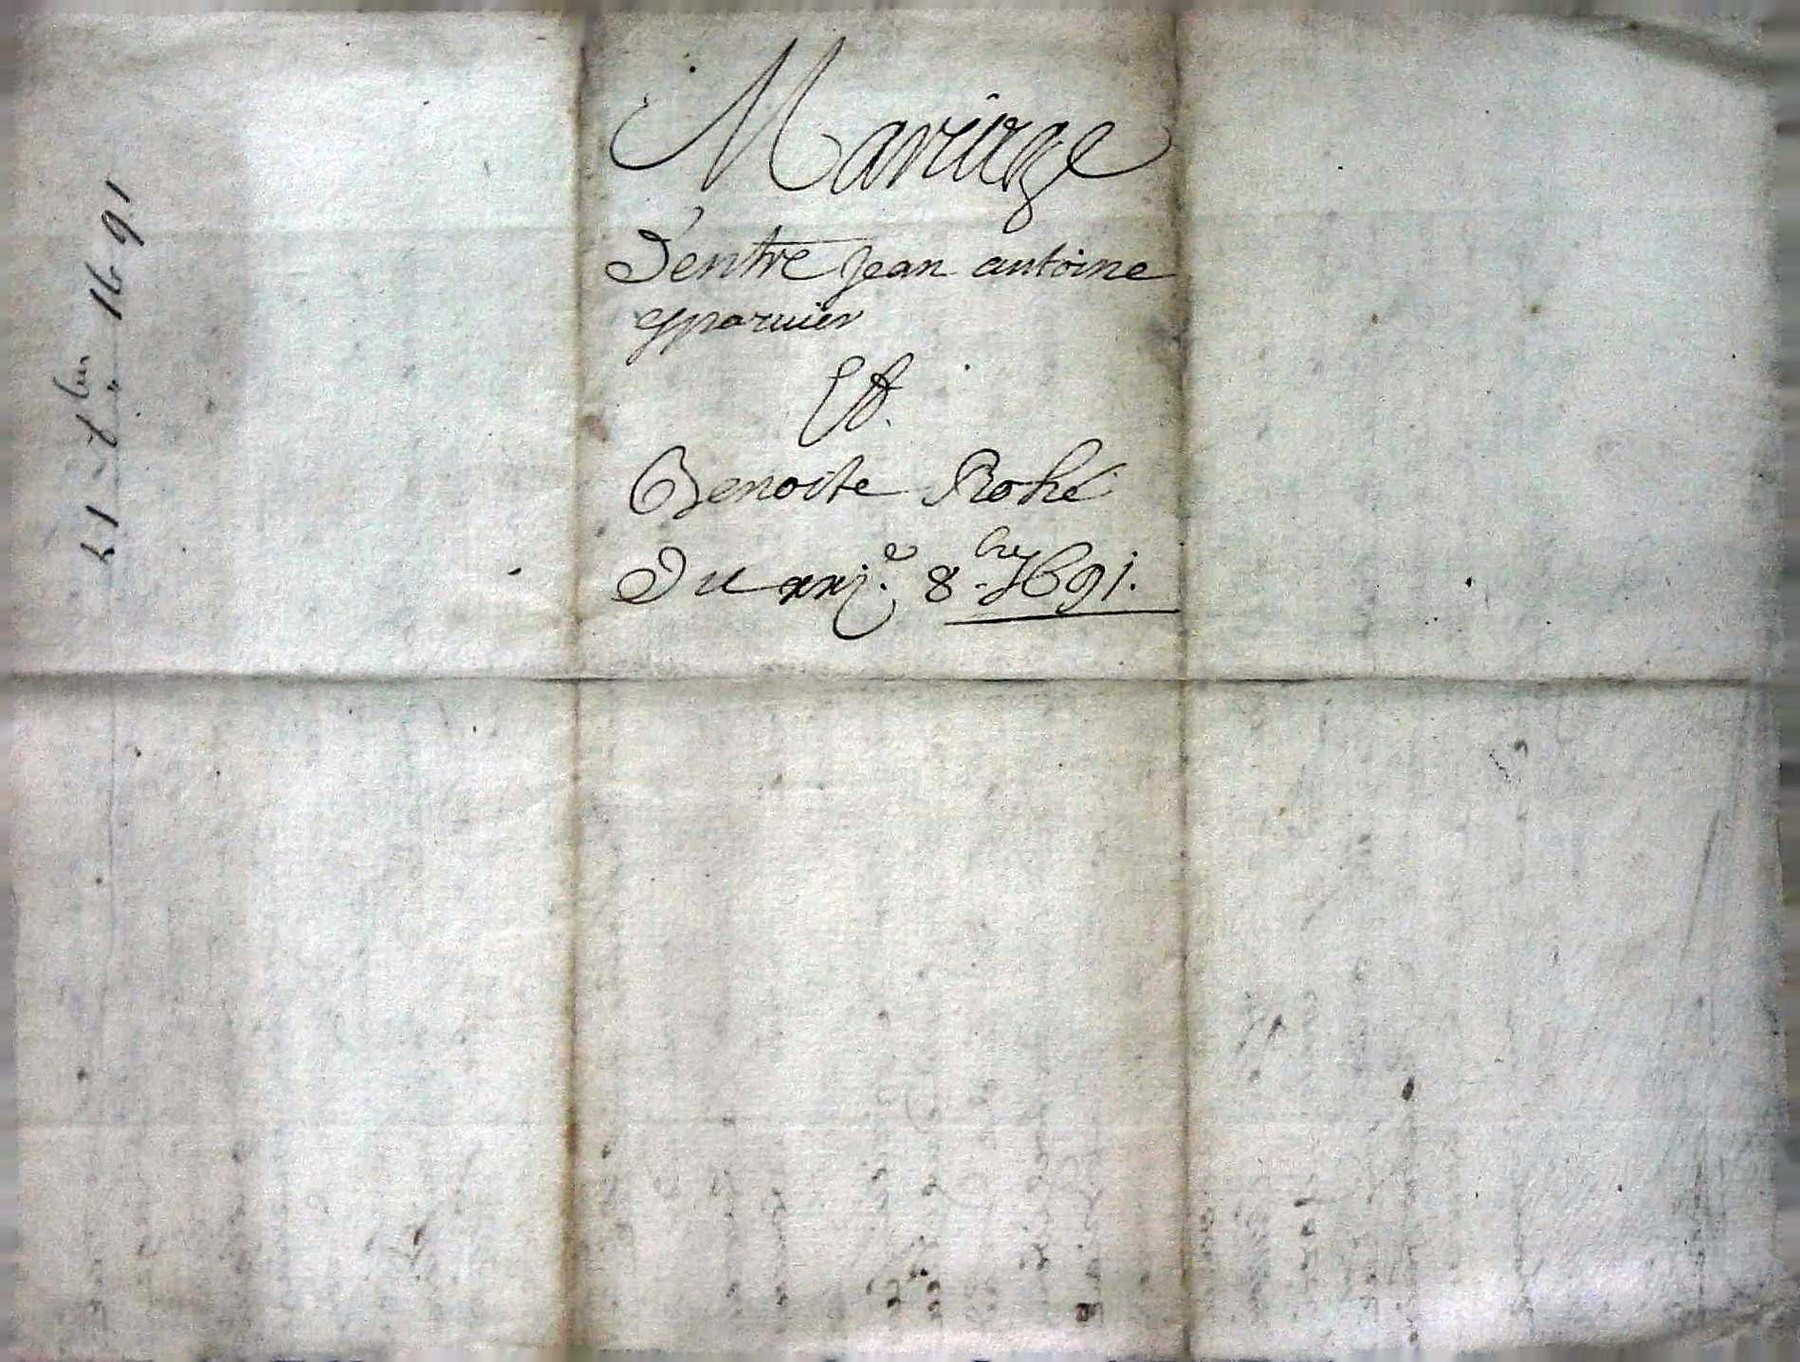 Mariage
D'entre Jean antoine
Epparuier
Et.
Benoite Rohé
Du xxj.e 8.bre 1691.
21 8bre 1691